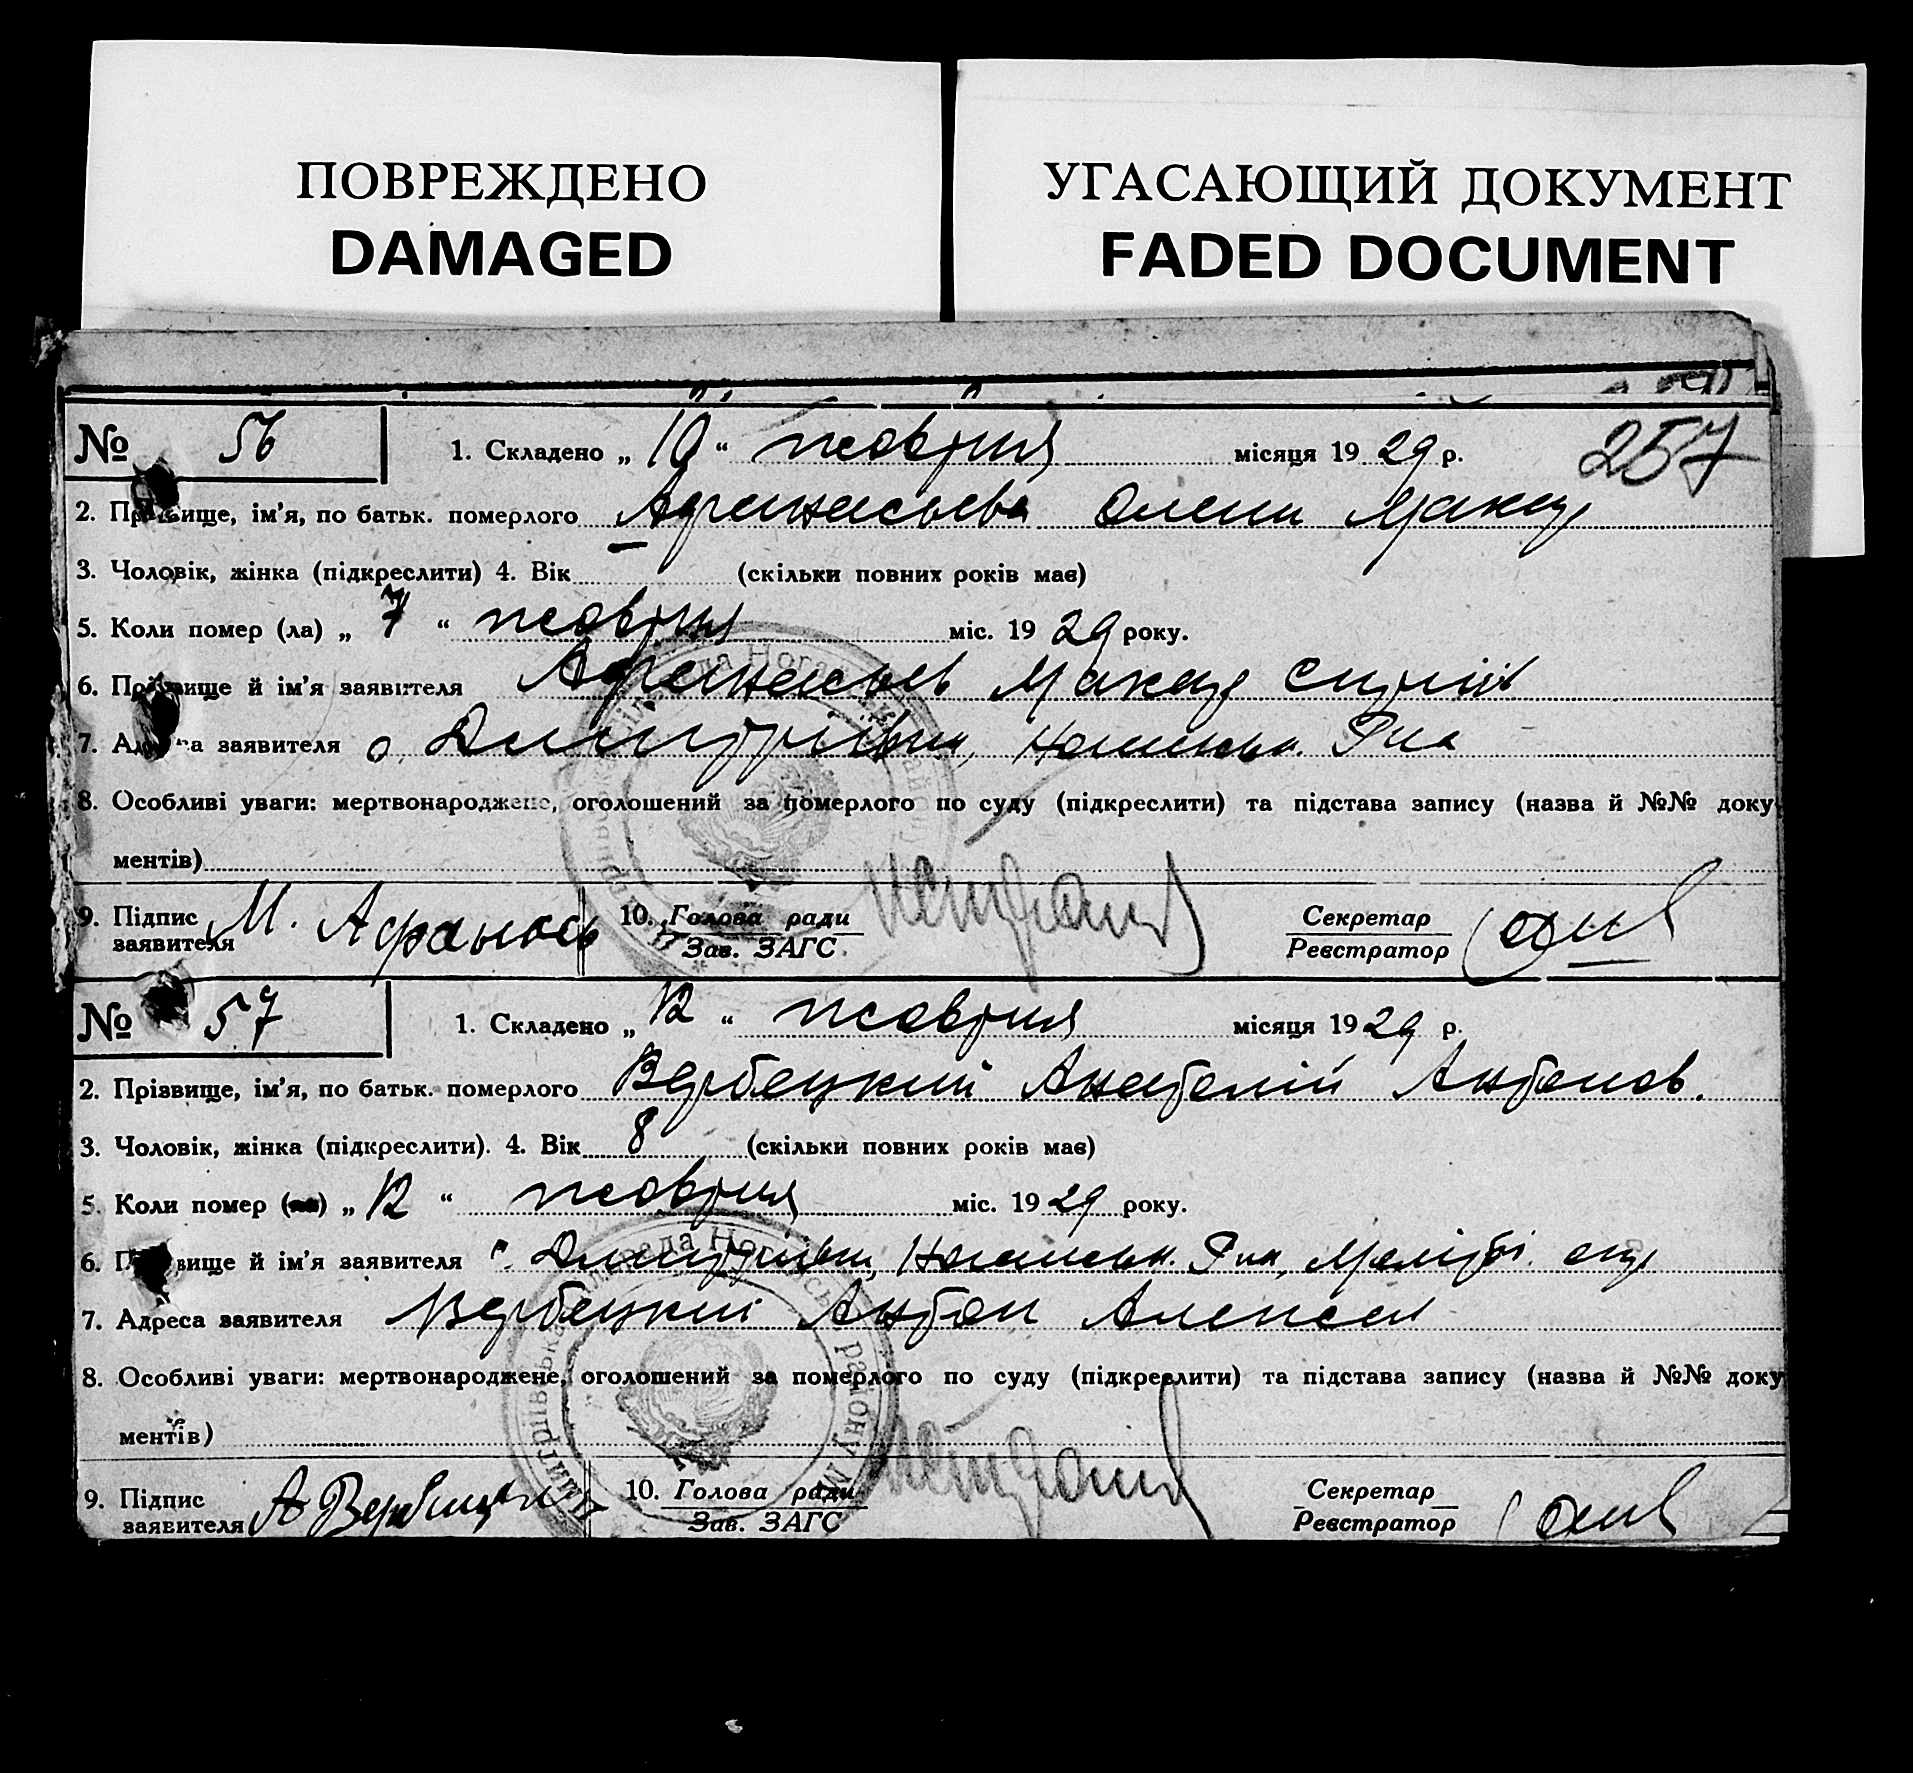 ПОВРЕЖДЕНО
DAMAGED
УГАСАЮЩИЙ ДОКУМЕНТ
FADED DOCUMENT
257
№ 56 1. Складено „ 10 “ жовтня місяця 19 29 р.
2. Прізвище, ім'я, по батьк. померлого Афанасьева Олени Макар
3. Чоловік, жінка (підкреслити) 4. Вік (скільки повних років має)
5. Коли помер (ла) „ 7 “ жовтня міс. 19 29 року.
6. Прізвище й ім'я заявителя Афанасьев Макар
7. Адреса заявителя с. Дмитріївки, Рна
8. Особливі уваги: мертвонароджене, оголошений за померлого по суду (підкреслити) та підстава запису (назва й №№ доку
ментів)
9. Підпис заявителя М. Афанась 10. Голова ради Зав. ЗАГС Секретар Реєстратор
№ 57 1. Складено „ 12 “ жовтня місяця 19 29 р.
2. Прізвище, ім'я, по батьк. померлого Вербецкий Анатолій Антонов.
3. Чоловік, жінка (підкреслити). 4. Вік 8 (скільки повних років має)
5. Коли помер (ла) „ 12 “ жовтня міс. 19 29 року.
6. Прізвище й ім'я заявителя с. Дмитріївки, Рна, Меліт. окр
7. Адреса заявителя Вербецкий Антон Алексеев
8. Особливі уваги: мертвонароджене, оголошений за померлого по суду (підкреслити) та підстава запису (назва й №№ доку
ментів)
9. Підпис заявителя А Вербицкий 10. Голова ради Зав. ЗАГС Секретар Реєстратор